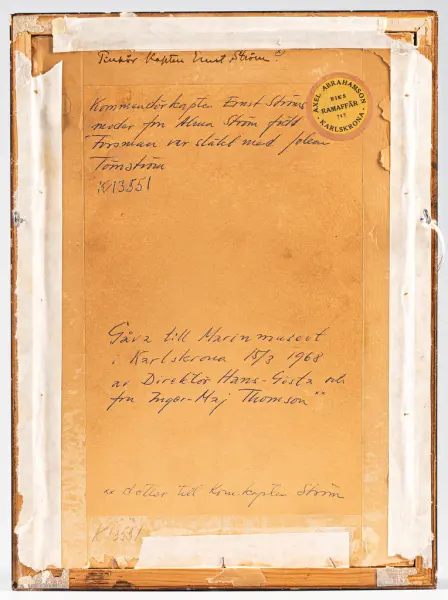 Tillhör Kapten Ernst Ström
AXEL ABRAHAMSON
RIKS
RAMAFFÄR
712
KARLSKRONA
Kommendörkapten Ernst Ströms
moder fru Alma Ström född
Forsman var släkt med
Törnström
K13551
Gåva till Marinmuseet
i Karlskrona 15/3 1968
av Direktör Hans-Gösta och
fru Inger-Maj Thomson xx
xx dotter till Kom.kapten Ström
K13551